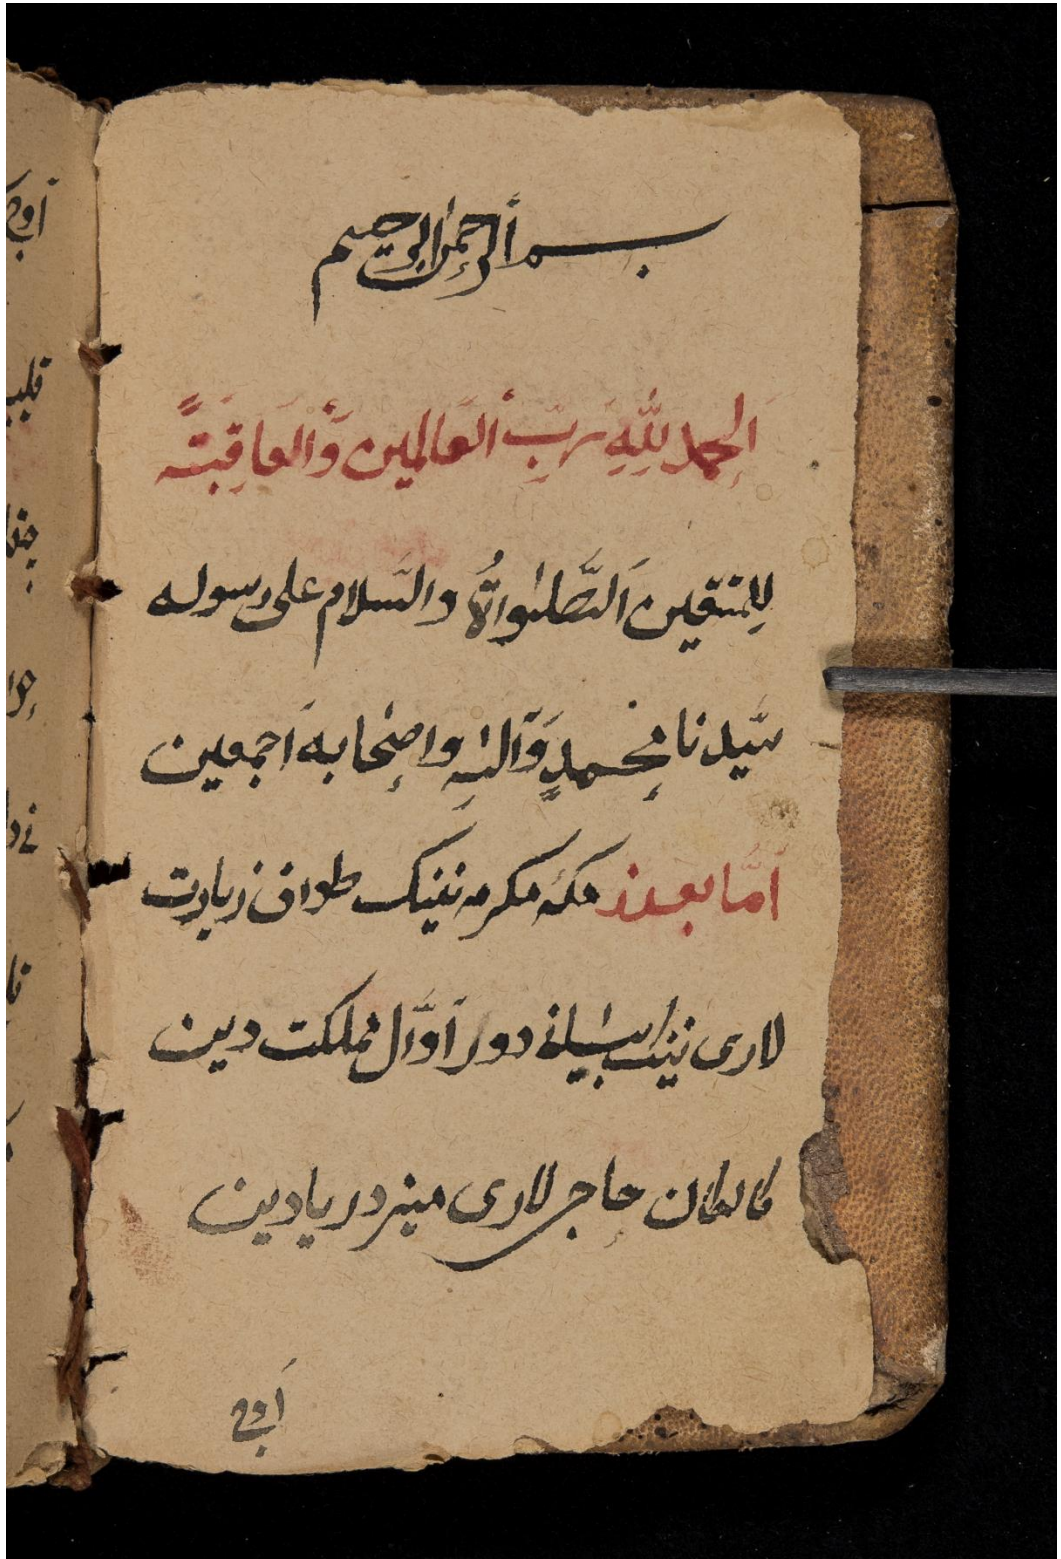 بسم الرحمن الرحيم
اَلحمد لِلّٰهِ رَبِّ اَلعَالمين وَاَلعَاقِبَتہً
لِلمتقين اَلصَّلٰواةُ والسَّلام على رسوله
سَّيدنا محمدٍ وَآلہِ واصحابه اَجمعين
اَمَّا بعدند مكه مكرمه نينك طواف زيارت
لارى نينك بيانى دور اَوَّل مملكت دين
حاجى لارى مينز دريا دين